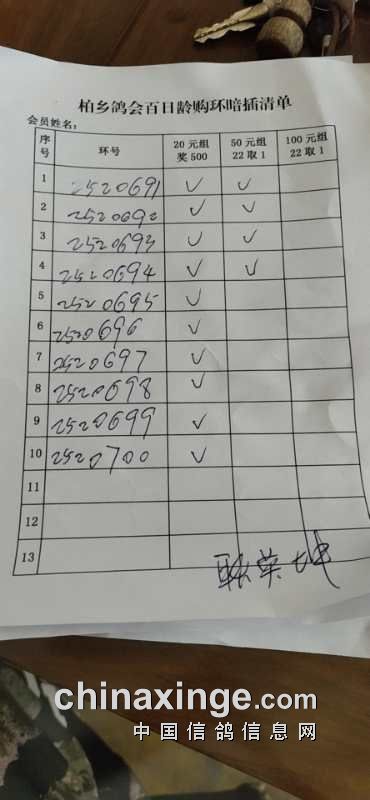 柏乡鸽会百日龄购环暗插清单
会员姓名：
序号 环号 20元组 奖500 50元组 22取1 100元组 22取1
1 2520691 ✓ ✓
2 2520692 ✓ ✓
3 2520693 ✓ ✓
4 2520694 ✓ ✓
5 2520695 ✓
6 2520696 ✓
7 2520697 ✓
8 2520698 ✓
9 2520699 ✓
10 2520700 ✓
11
12
13
chinaxinge.com
中国信鸽信息网